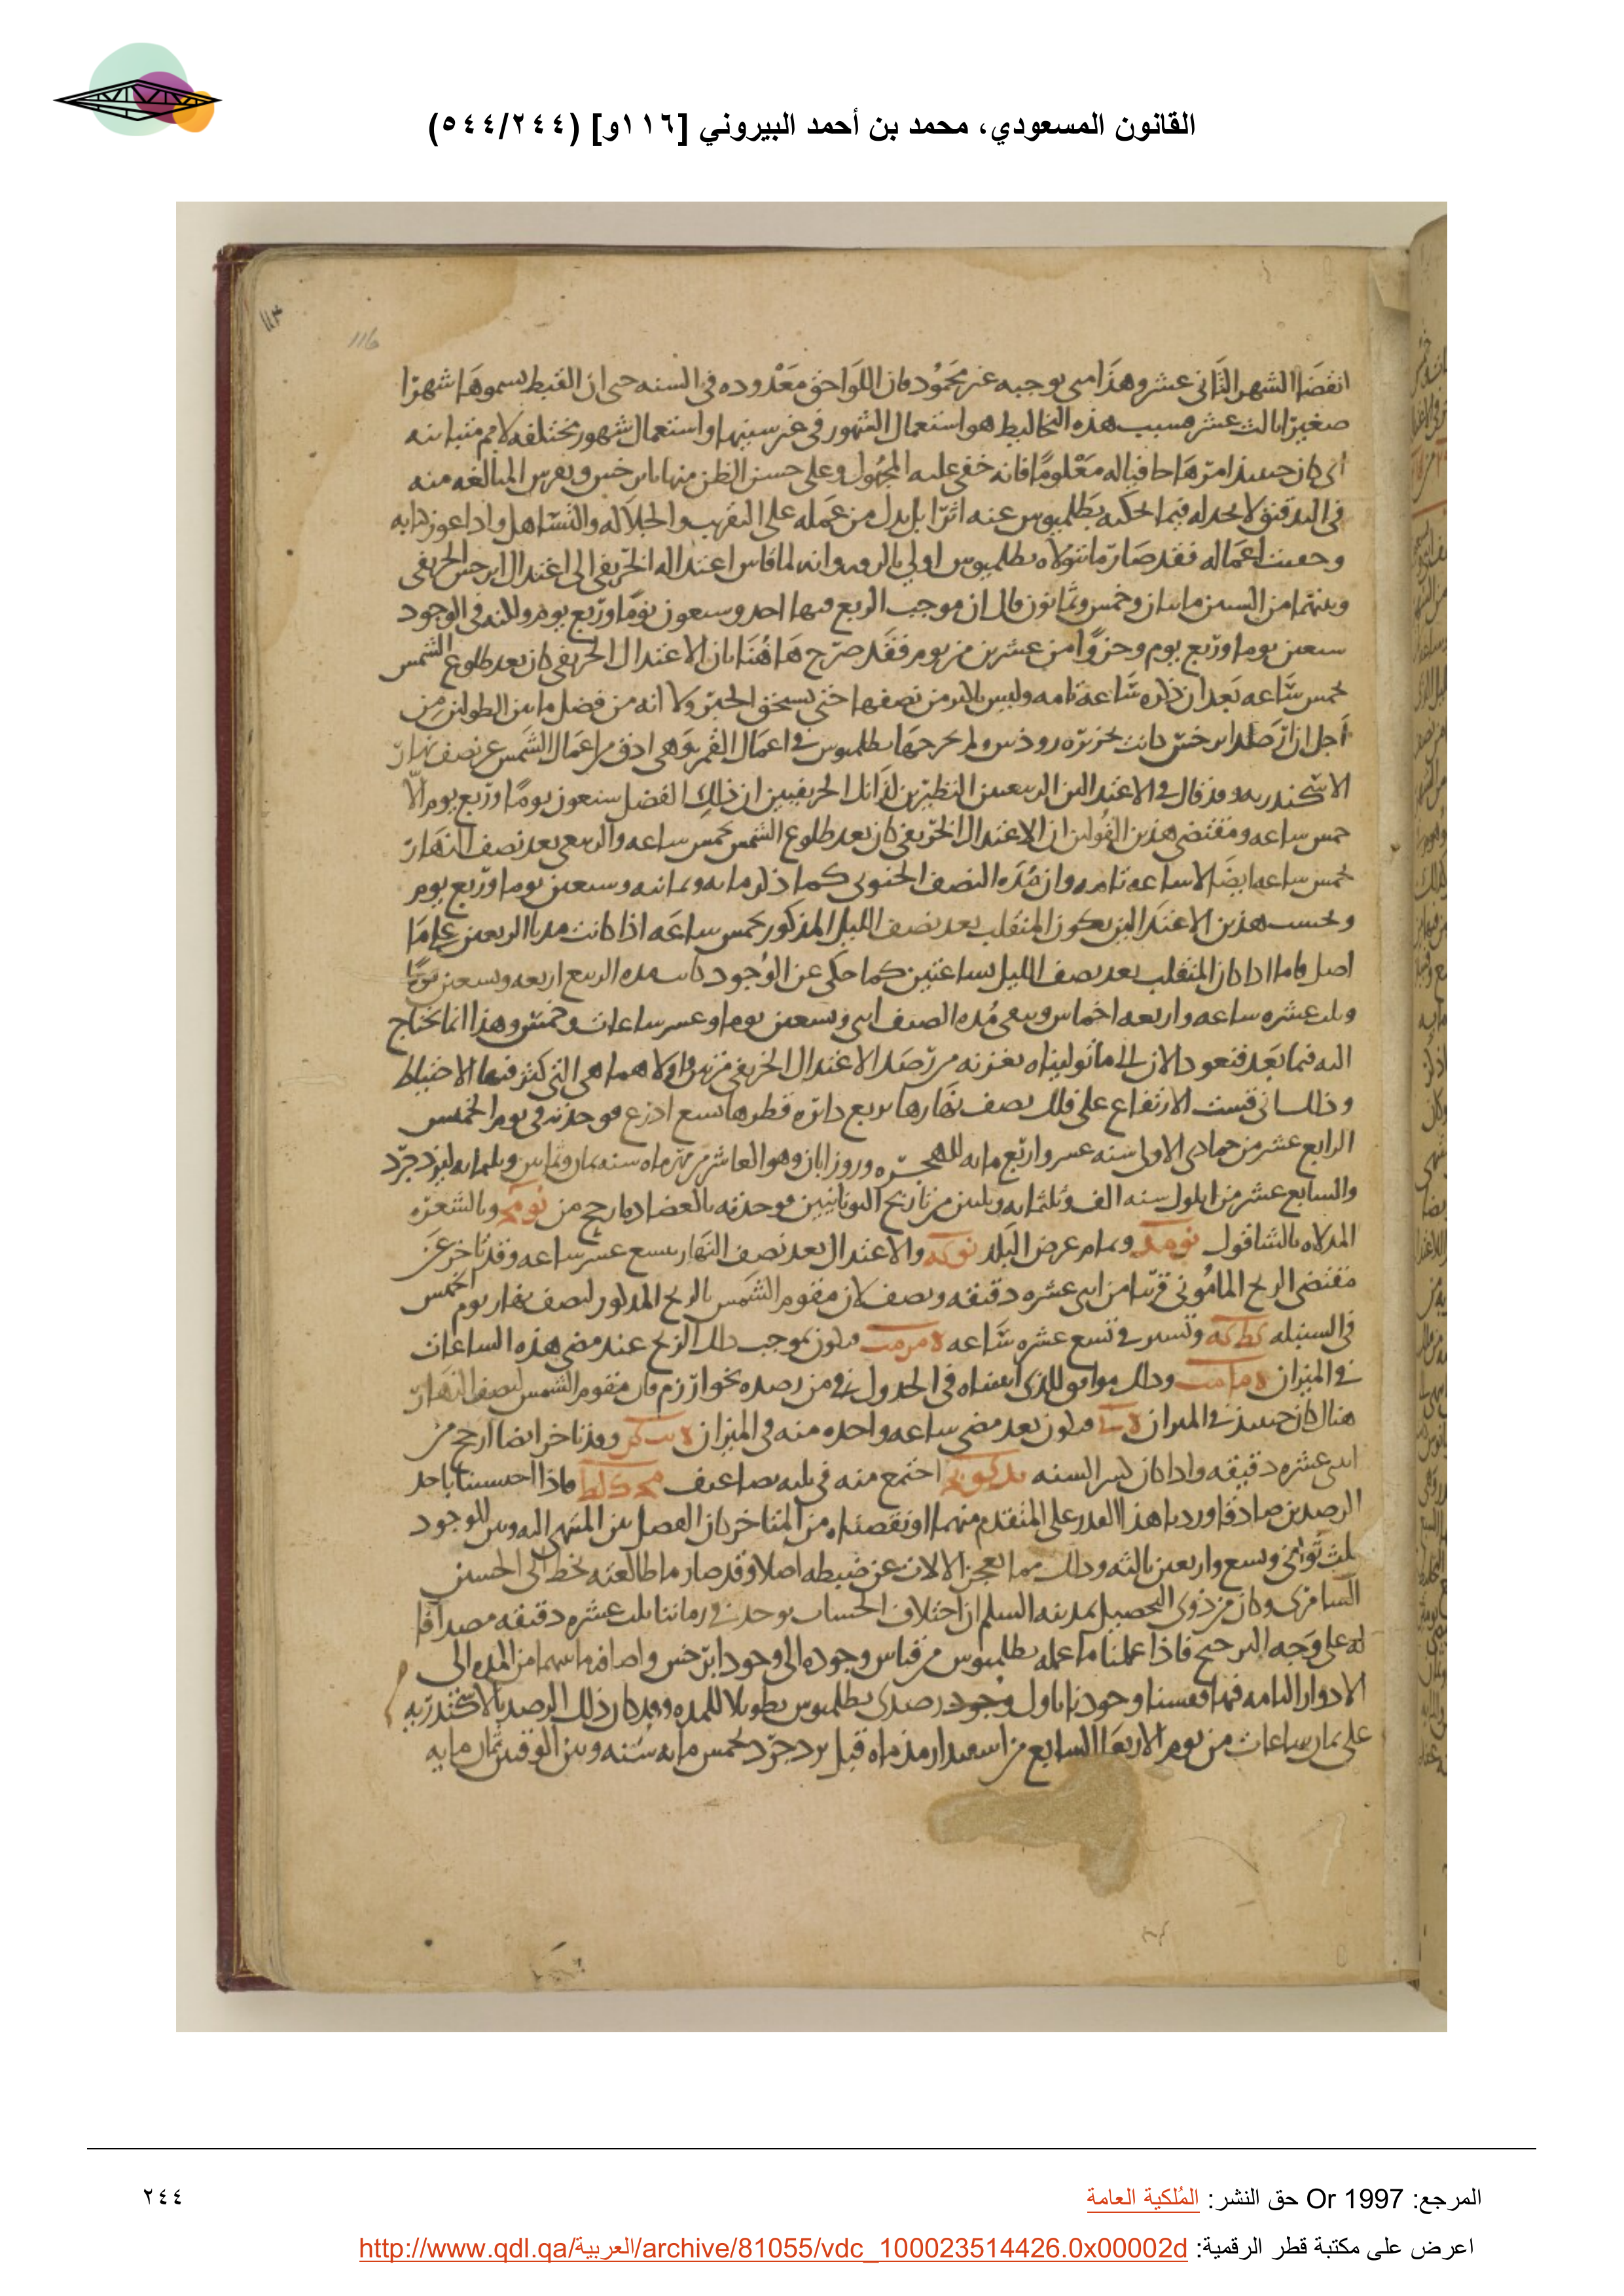 القانون المسعودي، محمد بن أحمد البيروني [١١٦و] (٥٤٤/٢٤٤)
١١٣
116
انقضا الشهر الثاني عشر وهذا مى بوجبه غير محمود فان اللواحق معدوده في السنه حتى ان القبط يسموها شهرا
صغيرا ثالث عشر فسبب هذه التخاليط هو استعمال الشهور في غير سنيها واستعمال شهور مختلفه لامم متباينه
كان حينئذ امرها حافياله معلوما فانه خفى عليه المجهول وعلى حسن الظن منها بابرخس ونفرس المبالغه منه
في التدقيق لا نجد له فيما يحكيه بطلميوس عنه اثرا بل يدل من عمله على التقريب والجلاله والتساهل واذا عوز كتابه
وخفيت اعماله فقد صار ما تولاه بطلميوس اولى بالرويه وانه لما قاس اعتداله الخريفي الى اعتدال ابرخس الخريفي
وبينهما من السنين مايتان وخمس وثمانون قال ان موجب الربع فيها احد وسبعون يوما وربع يوم ولكنه في الوجود
سبعين يوما وربع يوم وجزوا من عشرين من يوم فقد صرح هاهنا بان الاعتدال الخريفي كان بعد طلوع الشمس
بخمس ساعه بعد ان ذكره ساعة تامه وليس باكثر من نصفها حتى يستحق الجبر ولا انه من فضل ما بين الطولين من
اجل ان ارصاد ابرخس كانت بجزيره روذس ولم يخرجها بطلميوس في اعمال القمر وهي ادق من اعمال الشمس عن نصف نهار
الاسكندريه وقد قال في الاعتدالين الربيعين النظيرين لذانك الخريفيين ان ذلك الفضل سبعون يوما وربع يوم الا
خمس ساعه ومقتضى هذين القولين ان الاعتدال الخريفي كان بعد طلوع الشمس بخمس ساعه والربيعي بعد نصف النهار
بخمس ساعه ايضا لا ساعه تامه وان مده النصف الجنوبي كما ذكر مايه وثمانيه وسبعين يوما وربع يوم
وبحسب هذين الاعتدالين يكون المنقلب بعد نصف الليل المذكور بخمس ساعه اذا كانت مدتا الربعين على ما
اصل فاما اذا كان المنقلب بعد نصف الليل بساعتين كما حكى عن الوجود كانت مده الربيع اربعه وتسعين يوما
وثلث عشره ساعه واربعه اخماس وبقى مده الصيف اثنين وتسعين يوما وعشر ساعات وخمس وهذا انما يحتاج
اليه فيما بعد فنعود الان الى ما توليناه بغزنه من رصد الاعتدال الخريفي مرتين واولاهما هي التي كثر فيها الاحتياط
وذلك اني قست الارتفاع على فلك نصف نهارها بربع دائره قطرها تسع اذرع فوجدته في يوم الخميس
الرابع عشر من جمادى الاولى سنه عشر واربع مايه للهجره وروز ابان وهو العاشر من مهر ماه سنه ثمان وثمانين وثلثمايه ليزدجرد
والسابع عشر من ايلول سنه الف وثلثمايه وثلثين من تاريخ اليونانيين فوجدته بالعضاده ارجح من نو مح وبالشعره
المدلاه بالشاقول نو مد وتمام عرض البلد نو كه والاعتدال بعد نصف النهار بتسع عشر ساعه وقد تاخر عن
مقتضى الزيج المأموني قريبا من اثنى عشره دقيقه ونصف لان مقوم الشمس بالزيج المذكور لنصف نهار يوم الخميس
في السنبله كط كه وتسير في تسع عشره ساعه فيكون بموجب ذلك الزيج عند مضى هذه الساعات
في الميزان وذلك موافق للذي اثبتناه في الجدول في من رصده بخوارزم فان مقوم الشمس لنصف النهار
هناك كان حينئذ في الميزان فيكون بعد مضى ساعه واحده منه في الميزان وقد تاخر ايضا ارجح من
اثنى عشره دقيقه واذا كان كسر السنه اجتمع منه في ثلثه تضاعيف فاذا احسسنا باحد
الرصدين صادقا وردنا هذا القدر على المتقدم منهما او نقصناه من المتاخر كان الفصل بين المنتهى اليه وبين الموجود
ثلث ثواني وسبع واربعين ثالثه وذلك مما يعجز الالات عن ضبطه اصلا وقد صار ما طالعته بخط ابي الحسين
السامري وكان من ذوي التحصيل بمدينه السلم ان اختلاف الحساب يوجد في زماننا ثلث عشره دقيقه مصداقا
له على وجه الترجيح فاذا عملنا ما عمله بطلميوس من قياس وجوده الى وجود ابرخس واضافه ما بينهما من المده الى
الادوار التامه فيها فقسنا وجودنا باول وجود رصدى بطلميوس تطويلا للمده وقد كان ذلك الرصد بالاسكندريه
على ثمان ساعات من يوم الاربعا السابع من اسفندارمذ ماه قبل يزدجرد بخمس مايه سنه وبين الوقتين ثمان مايه
المرجع: Or 1997 حق النشر: المُلكية العامة
٢٤٤
اعرض على مكتبة قطر الرقمية: http://www.qdl.qa/العربية/archive/81055/vdc_100023514426.0x00002d